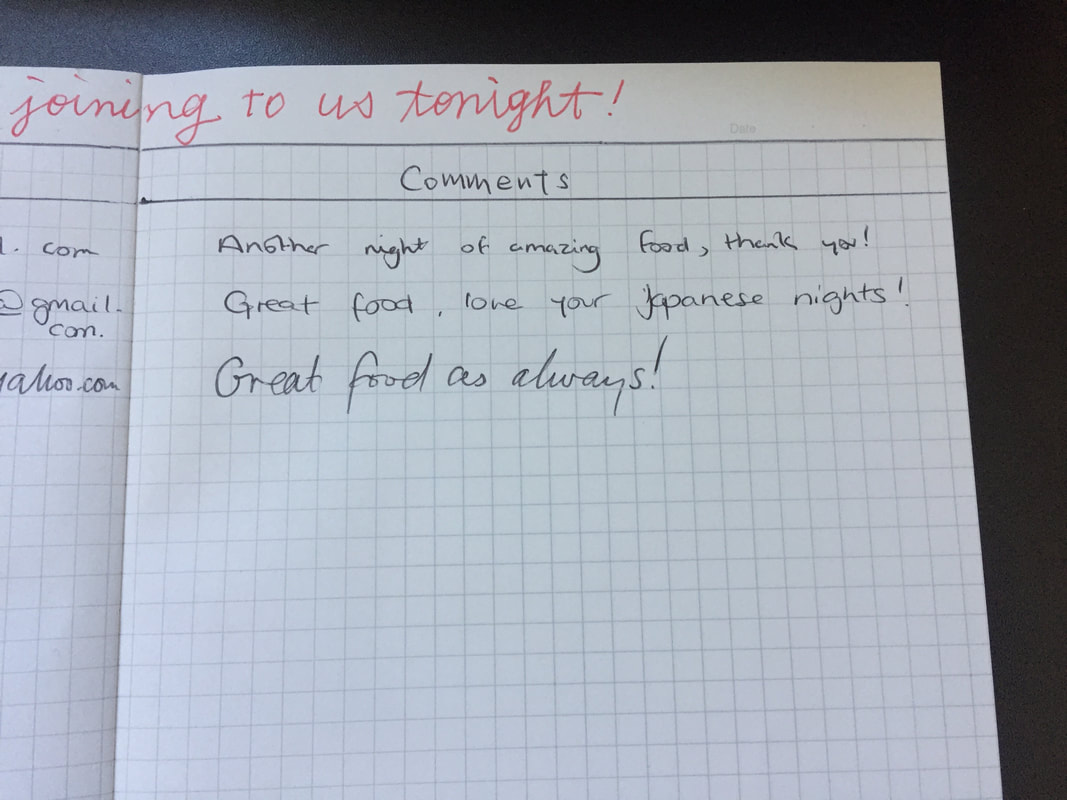 joining to us tonight!
Date
Comments
l. com Another night of amazing food, thank you!
@gmail. Great food, love your Japanese nights!
com.
yahoo.com Great food as always!